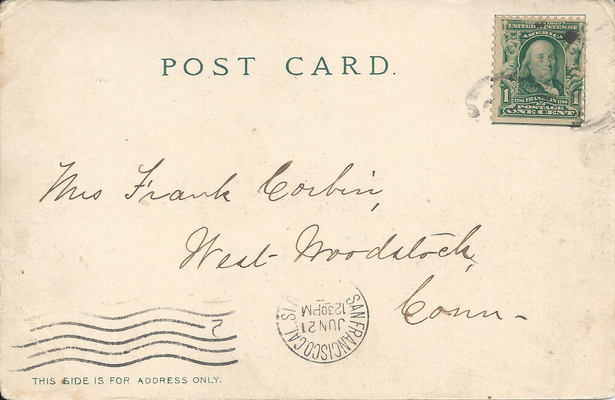 POST CARD.
UNITED STATES OF
AMERICA
1 FRANKLIN 1
POSTAGE
ONE CENT
Mrs Frank Corbin,
West Woodstock,
Conn-
SAN FRANCISCO, CAL
JUN 21
12 30 PM
2
THIS SIDE IS FOR ADDRESS ONLY.